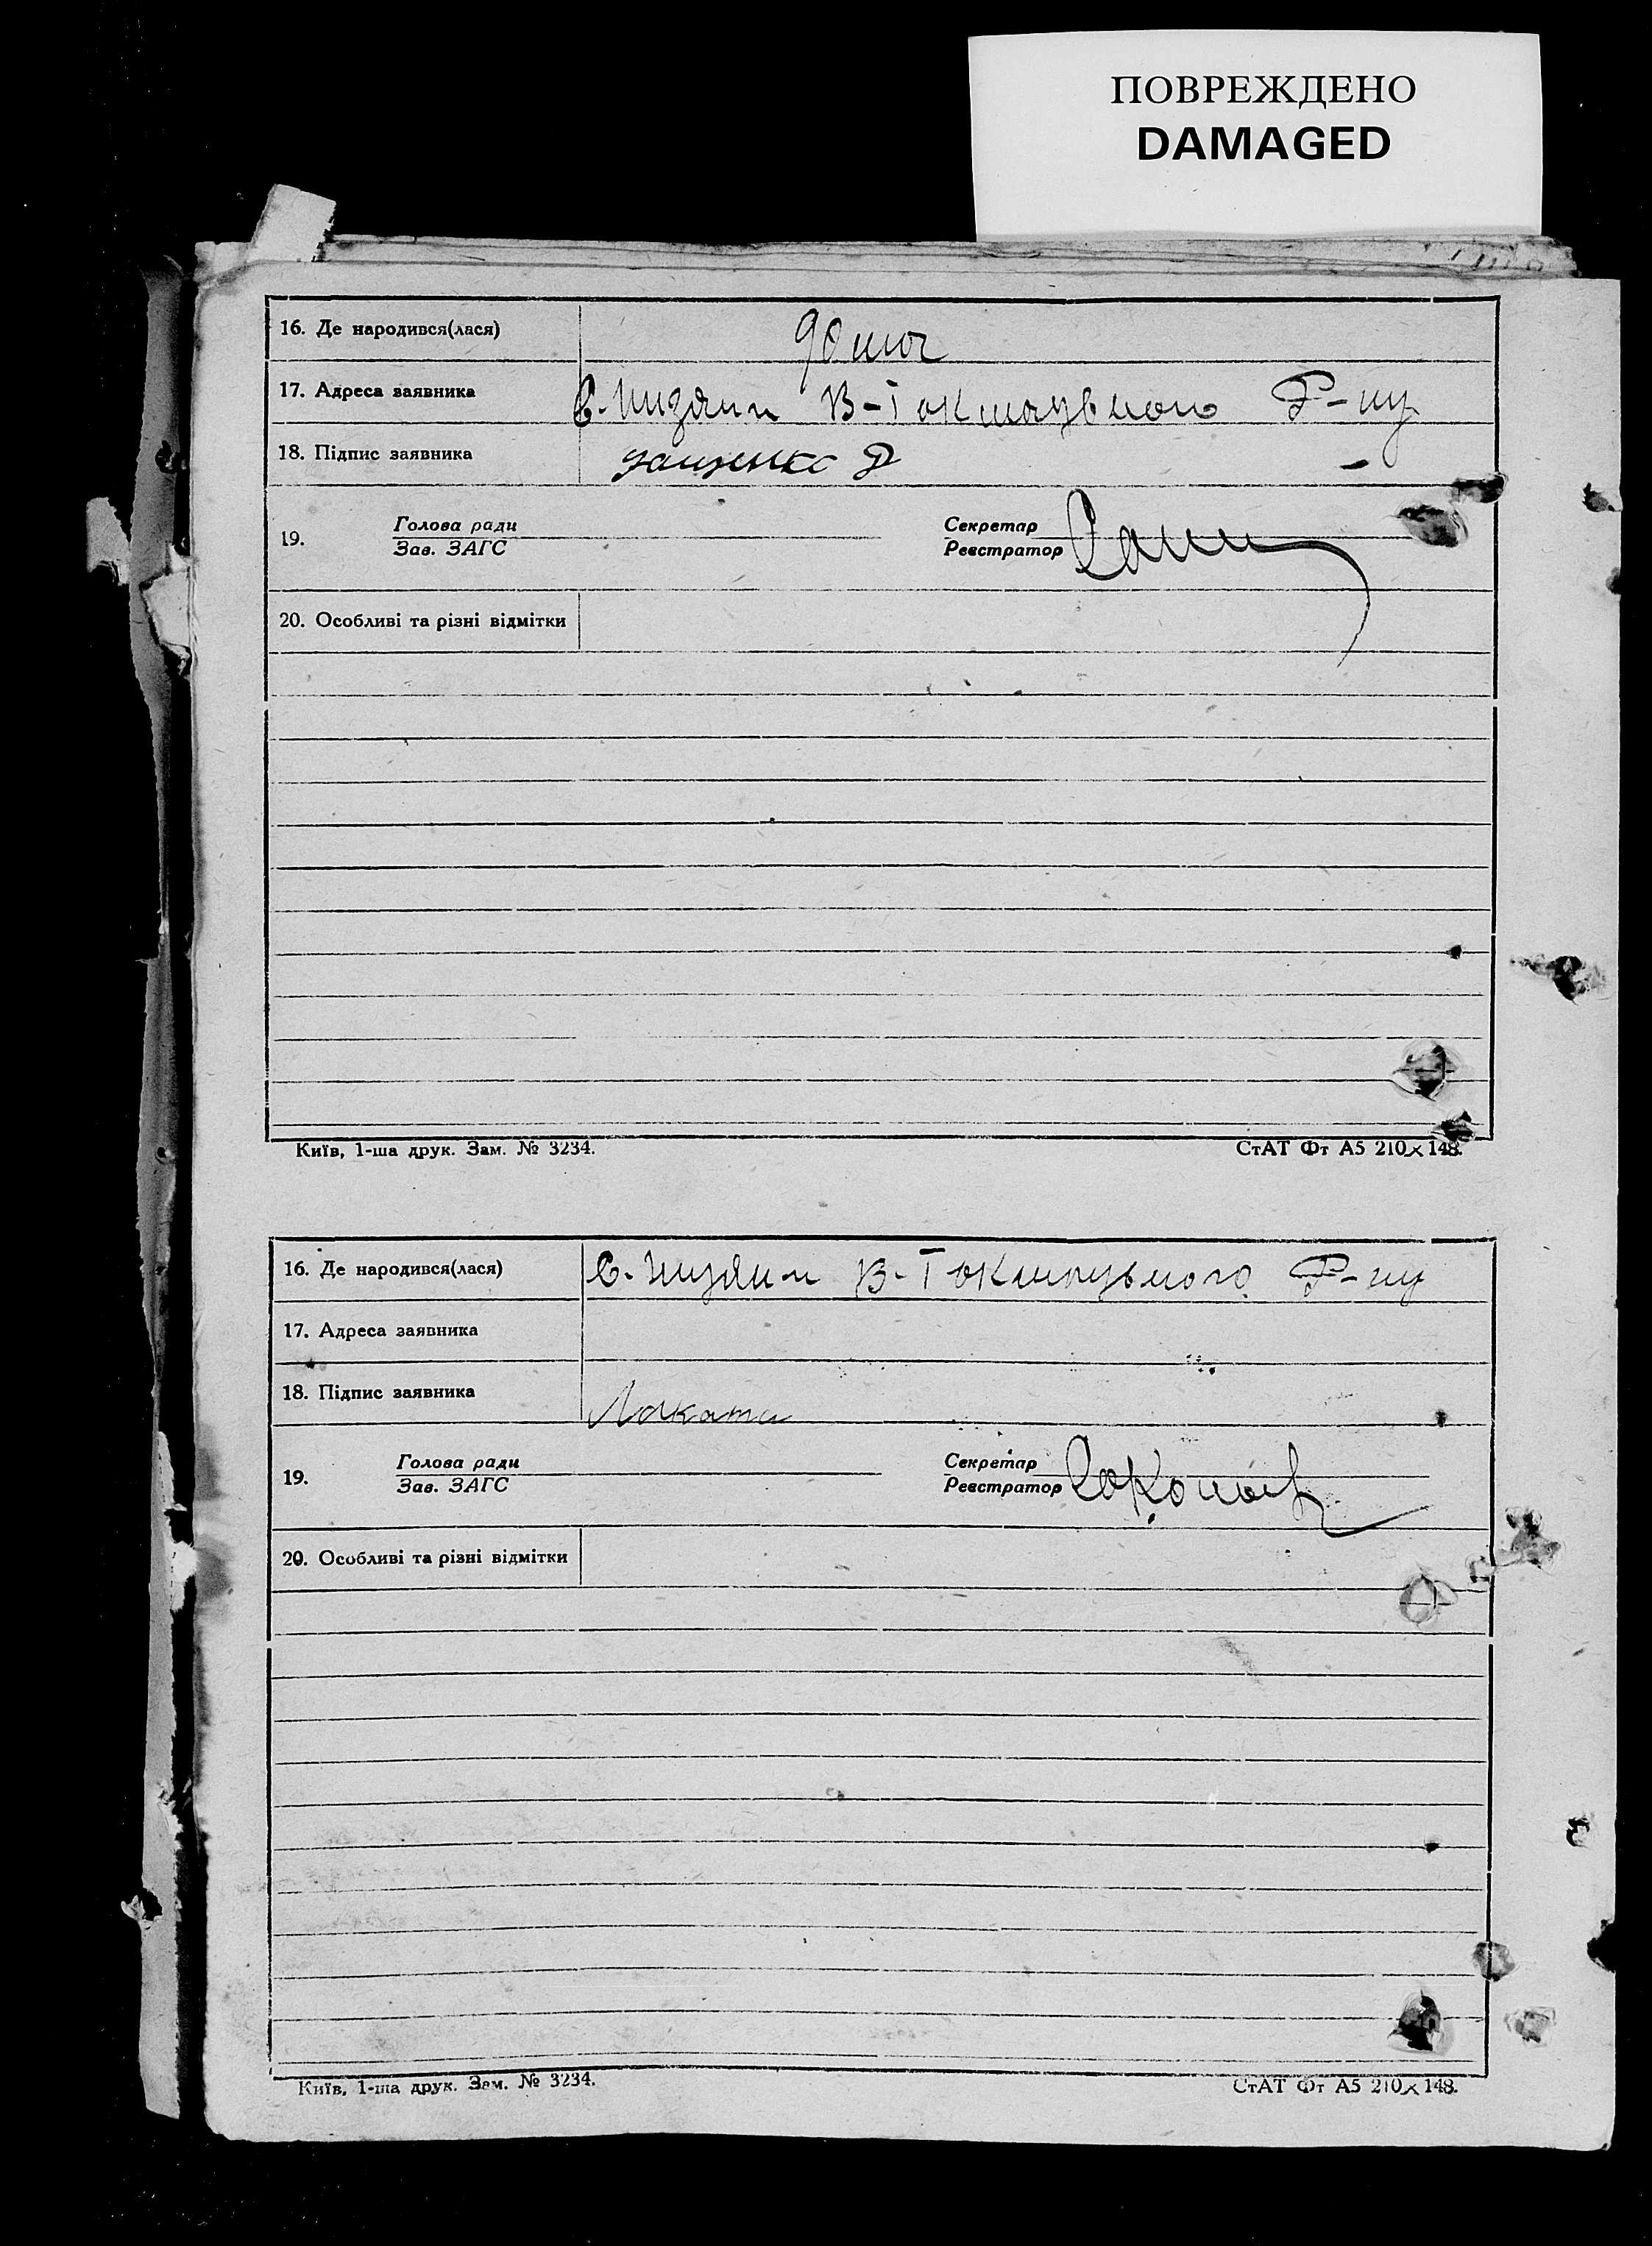 ПОВРЕЖДЕНО
DAMAGED
16. Де народився(лася)
17. Адреса заявника В-Токмацького Р-ну
18. Підпис заявника
19. Голова ради Секретар
Зав. ЗАГС Реєстратор
20. Особливі та різні відмітки
Київ, 1-ша друк. Зам. № 3234. СтАТ Фт А5 210×148.
16. Де народився(лася) В-Токмацького Р-ну
17. Адреса заявника
18. Підпис заявника
19. Голова ради Секретар
Зав. ЗАГС Реєстратор
20. Особливі та різні відмітки
Київ, 1-ша друк. Зам. № 3234. СтАТ Фт А5 210×148.